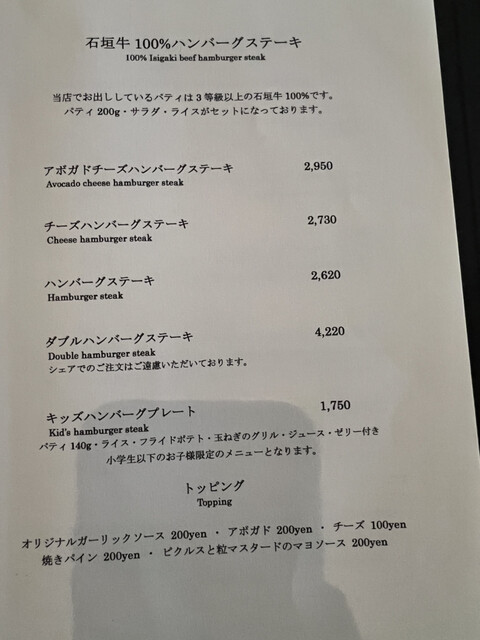 石垣牛 100%ハンバーグステーキ
100% Isigaki beef hamburger steak
当店でお出ししているパティは3等級以上の石垣牛100%です。
パティ 200g・サラダ・ライスがセットになっております。
アボガドチーズハンバーグステーキ 2,950
Avocado cheese hamburger steak
チーズハンバーグステーキ 2,730
Cheese hamburger steak
ハンバーグステーキ 2,620
Hamburger steak
ダブルハンバーグステーキ 4,220
Double hamburger steak
シェアでのご注文はご遠慮いただいております。
キッズハンバーグプレート 1,750
Kid's hamburger steak
パティ 140g・ライス・フライドポテト・玉ねぎのグリル・ジュース・ゼリー付き
小学生以下のお子様限定のメニューとなります。
トッピング
Topping
オリジナルガーリックソース 200yen ・ アボガド 200yen ・ チーズ 100yen
焼きパイン 200yen ・ ピクルスと粒マスタードのマヨソース 200yen